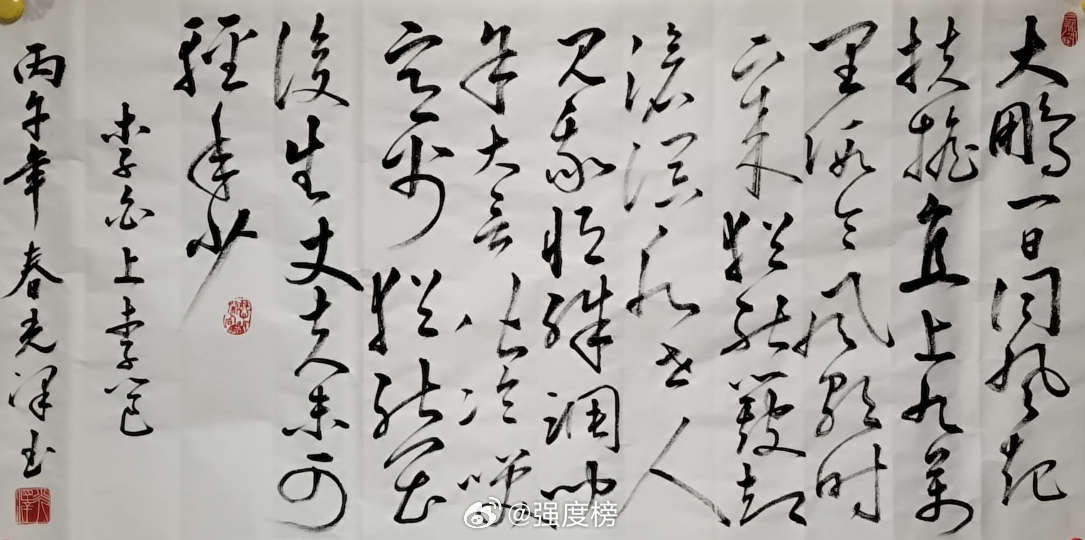 大鵬一日同风起
扶摇直上九萬
里假令风歇时
下来猶能簸却
滄溟水世人
见我恒殊調闻
余大言皆冷笑
宣父猶能畏
後生丈夫未可
輕年少
李白上李邕
丙午年春光泽书
@强度榜